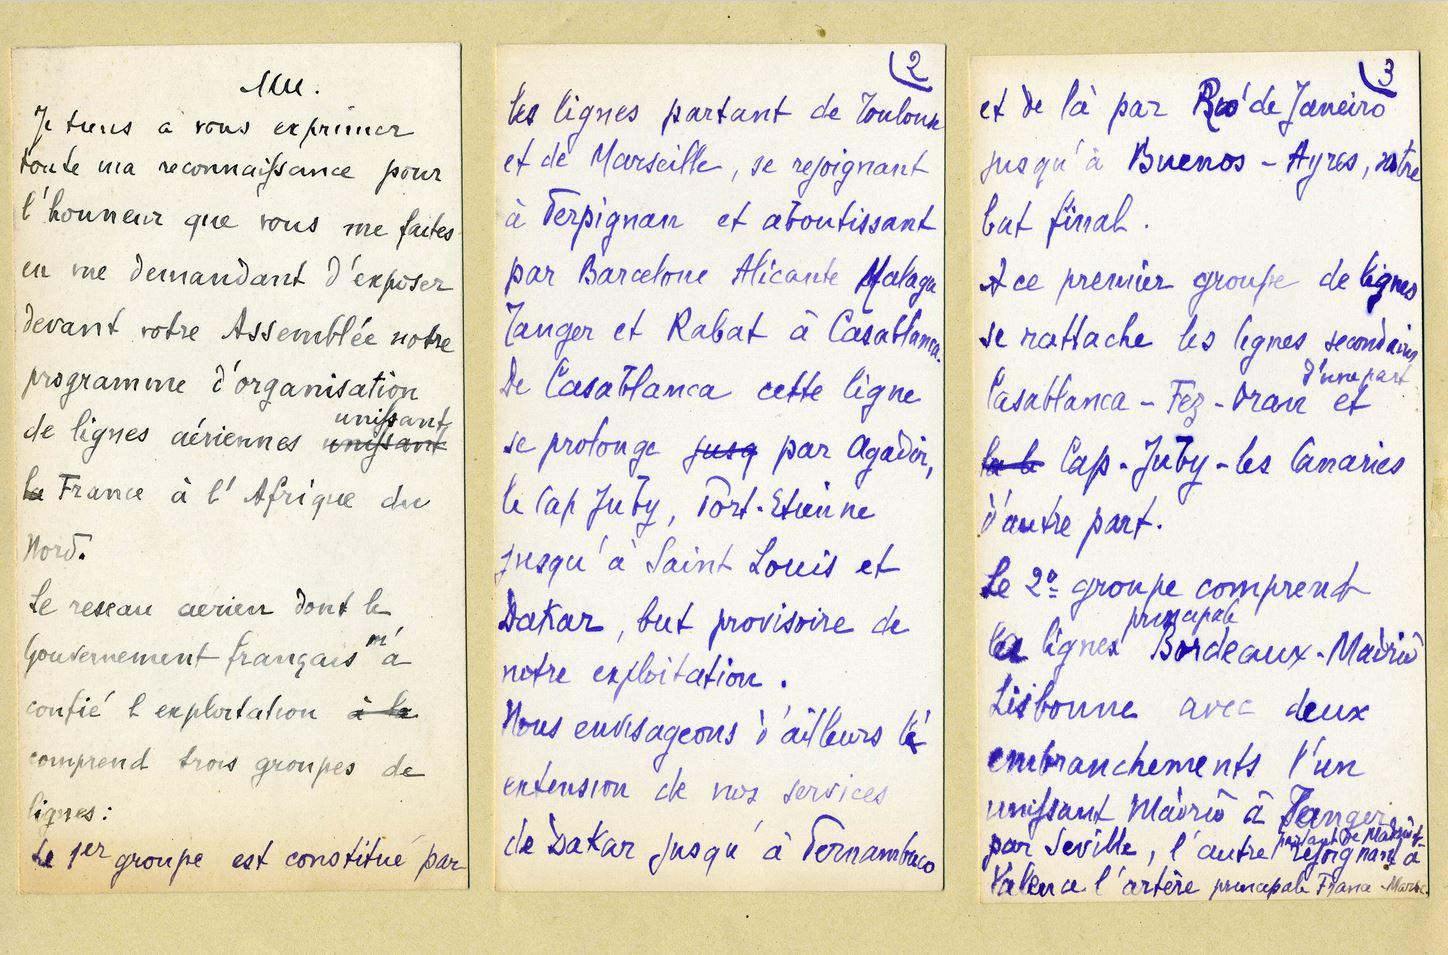 MM.
Je tiens à vous exprimer
toute ma reconnaissance pour
l'honneur que vous me faites
en me demandant d'exposer
devant votre Assemblée notre
programme d'organisation
unissant
de lignes aériennes unissant
la France à l'Afrique du
Nord.
Le reseau aerien dont le
Gouvernement français m'a
confié l exploitation à la
comprend trois groupes de
lignes:
Le 1er groupe est constitué par
2
les lignes partant de Toulouse
et de Marseille, se rejoignant
à Perpignan et aboutissant
par Barcelone Alicante Malaga
Tanger et Rabat à Casablanca.
De Casablanca cette ligne
se prolonge jusq par Agadir,
le Cap Juby, Port-Etienne
jusqu'à Saint Louis et
Dakar, but provisoire de
notre exploitation.
Nous envisageons d'ailleurs l'
extension de nos services
de Dakar jusqu'à Pernambuco
3
et de là par Rio de Janeiro
jusqu'à Buenos-Ayres, notre
but final.
A ce premier groupe de lignes
se rattache les lignes secondaires
d'une part
Casablanca-Fez-Oran et
la le Cap-Juby-les Canaries
d'autre part.
Le 2º groupe comprend
principale
la lignes Bordeaux-Madrid
Lisbonne avec deux
embranchements l'un
unissant Madrid à Tanger
partant de Madrid
par Seville, l'autre rejoignant à
Valence l'artère principale France-Maroc.